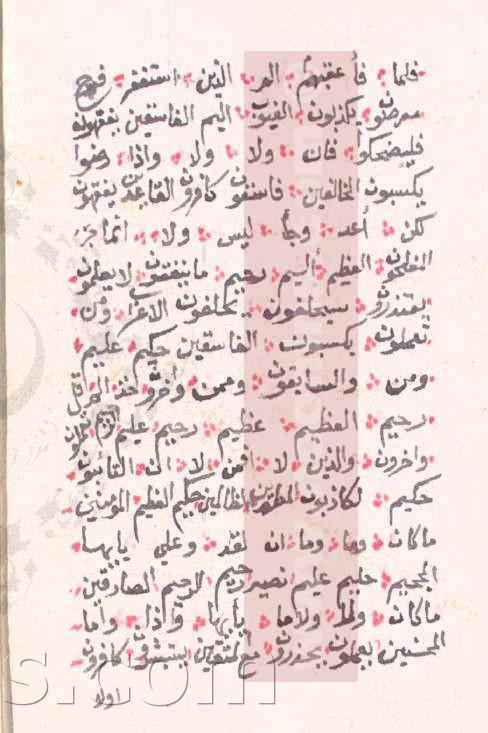 فلما فأعقبهم الم الذين استغفر فرح
معرضون يكذبون الغيوب اليم الفاسقين يفقهون
فليضحكوا فان ولا ولا واذا رضوا
يكسبون الخالفين فاسقون كافرون القاعدين يفقهون
لكن أعد وجاء ليس ولا انما
المفلحون العظيم أليم رحيم ما ينفقون لا يعلمون
يعتذرون سيحلفون يحلفون الاعراب ومن
تعملون يكسبون الفاسقين حكيم عليم
ومن والسابقون وممن وآخرون خذ الم
رحيم العظيم عظيم رحيم عليم
واخرون والذين لا افمن لا ان التائبون
حكيم لكاذبون المطهرين الظالمين حكيم العظيم المؤمنين
ماكان وما وما ان لقد وعلى يا أيها
الجحيم حليم عليم نصير رحيم الرحيم الصادقين
ماكان ولا وما يا أيها واذا وأما
المحسنين يعملون يحذرون مع المتقين يستبشرون كافرون
اولا
s.com